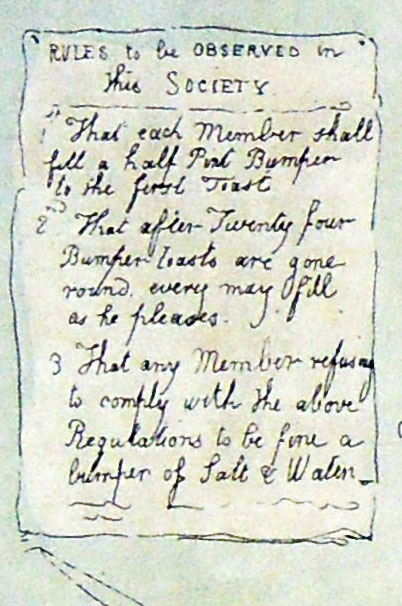 RULES to be OBSERVED in
this SOCIETY
1st That each Member shall
fill a half Pint Bumper
to the first Toast
2nd That after Twenty four
Bumper toasts are gone
round. every may fill
as he pleases.
3 That any Member refusing
to comply with the above
Regulations to be fine a
bumper of Salt & Water